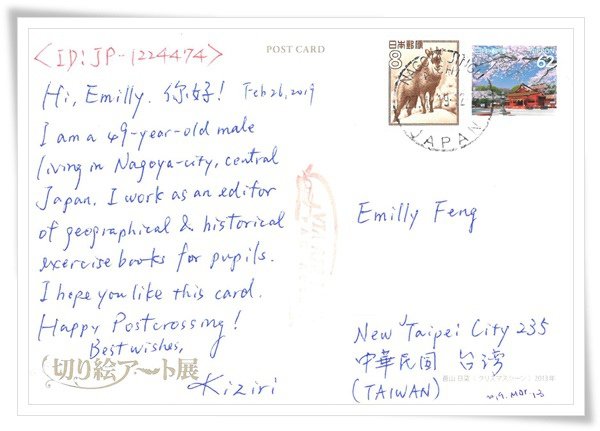 <ID: JP-1224474>
POST CARD
日本郵便
8
62
NAGOYA
JAPAN
Hi, Emilly. 你好! Feb 26, 2019
I am a 49-year-old male
living in Nagoya-city, central
Japan. I work as an editor
of geographical & historical
exercise books for pupils.
I hope you like this card.
Happy Postcrossing!
Best wishes,
Kiziri
切り絵アート展
Emilly Feng
New Taipei City 235
中華民国 台湾
(TAIWAN)
2013年